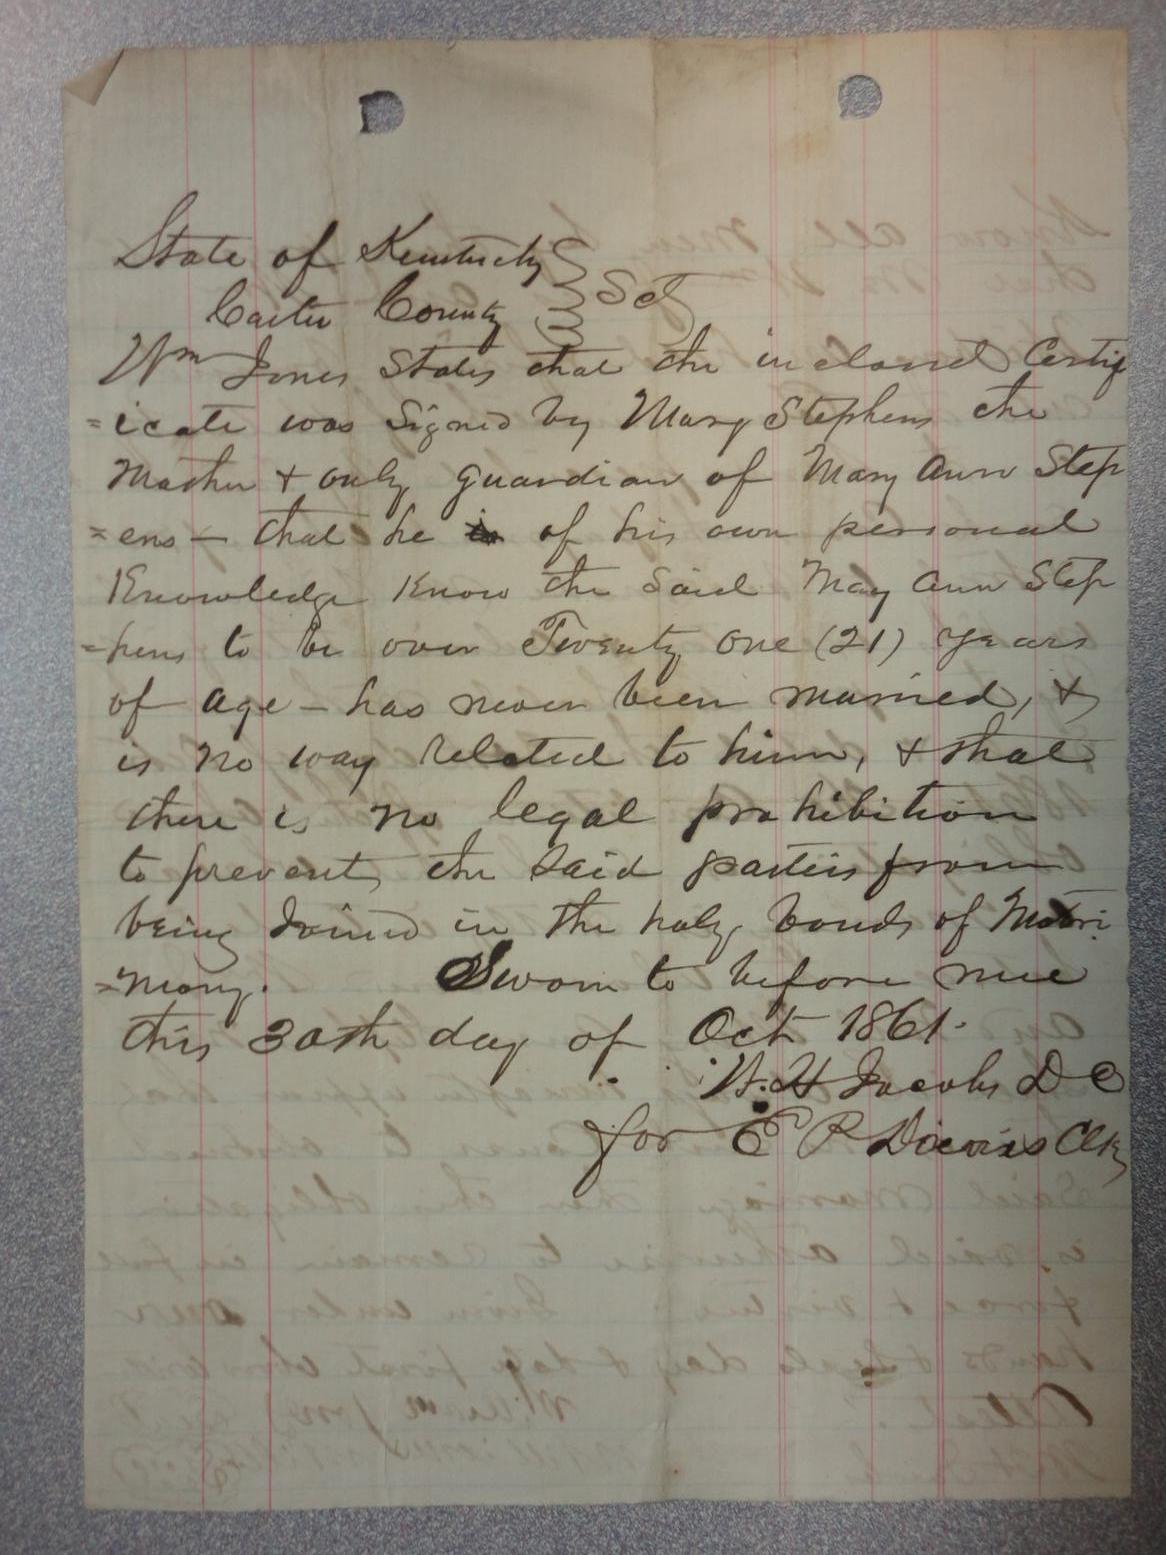 State of Kentucky
Carter County } Sct
Wm Jones States that the inclosed Certif
=icate was Signed by Mary Stephens the
Mother & only guardian of Mary Ann Step
=ens — that he is of his own personal
Knowledge Know the Said Mary Ann Step
=hens to be over Twenty One (21) years
of age – has never been married, &
is no way related to him, & that
there is no legal prohibition
to prevent the Said parties from
being Joined in the holy bonds of Matri
=mony. Sworn to before me
this 30th day of Oct 1861.
W. H Jacobs D C
for E P Davis Clk